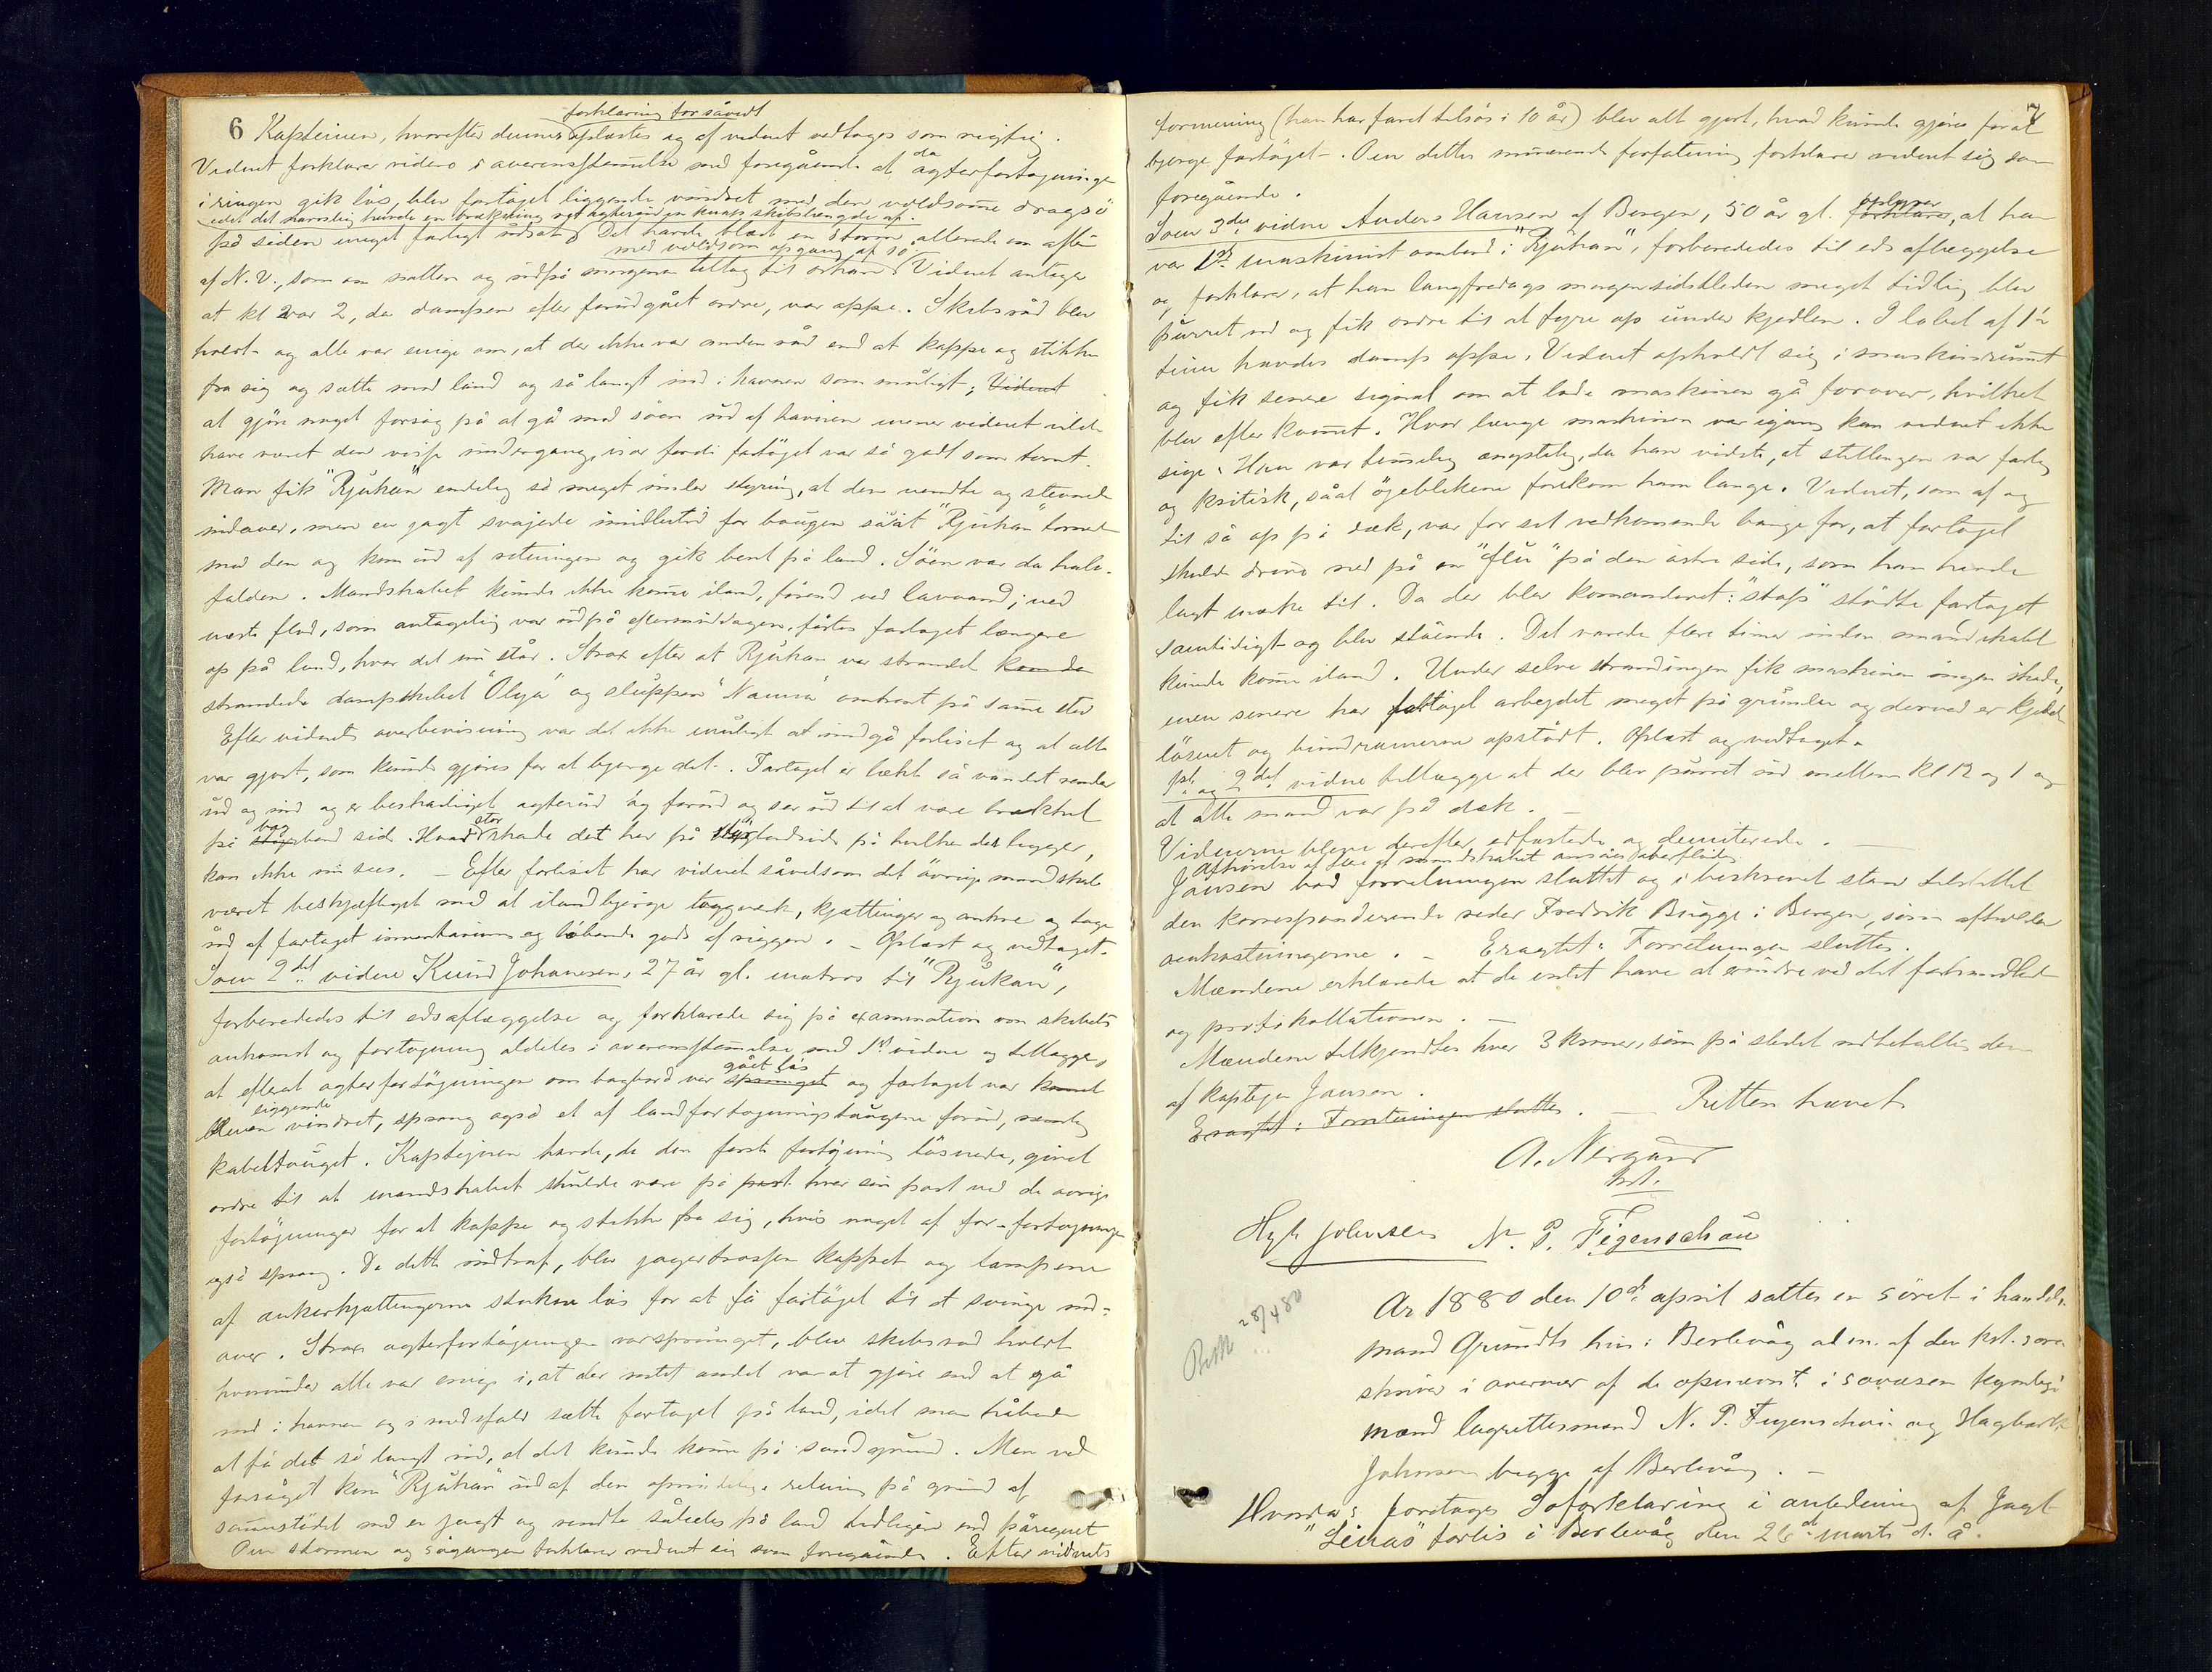 6 Kapteinen, hvorefter dennes forklaring forsåvidt oplæstes og af vidnet vedtages som rigtig.
Vidnet forklarer videre i overensstemmelse med foregående at da agterfortøyninge
i ringen gik løs, blev fartøjet liggende vindret med den voldsomme dragsö
idet det navnlig havde en brækning ret agterind en knap skibslængde af.
på siden meget farligt udsat. Det havde blæst en storm allerede om aften
med voldsom opgang af sø
af N.V., som om natten og indpå morgenen tiltog til orkan. Vidnet antager
at kl var 2, da dampen efter forudgået ordre, var oppe. Skibsråd blev
holdt og alle var enige om, at der ikke var anden råd end at kappe og stikke
fra sig og sætte mod land og så langt ind i havnen som muligt; Vidnet
at gjöre noget forsøg på at gå mod söen ud af havnen mener vidnet vilde
have været den visse undergang, især fordi fartöjet var så godt som tomt.
Man fik "Rjukan" endelig så meget under styring, at den vendte og stevnede
indover, men en jagt svajede imidlertid for bougen såat "Rjukan" tørnet
mod den og kom ud af retningen og gik bent på land. Söen var da halv-
falden. Mandskabet kunde ikke komme iland, förend ved lavvand; ved
næste flod, som antagelig var udpå eftermiddagen, førtes fartøjet længere
op på land, hvor det nu står. Strax efter at Rjukan var strandet
strandede dampskibet "Olga" og sluppen "Nanna" omtrent på samme sted
Efter vidnets overbevisning var det ikke muligt at undgå forliset og at alt
var gjort, som kunde gjøres for at bjerge det. Fartøjet er lækt så vandet render
ud og ind og er beskadiget agterud og forud og ser ud til at være brækket
på bagbord side. Hvad stor skade det har på styrbordside på hvilken det ligger,
kan ikke nu sees. – Efter forliset har vidnet såvelsom det övrige mandskab
været beskjæftiget med at ilandbjerge tougverk, kjættinger og ankre og tage
ud af fartøjet inventarium og løbende gods af riggen. – Oplæst og vedtaget.
Som 2det vidne Knud Johannesen, 27 år gl. matros til "Rjukan",
forberededes til edsaflæggelse og forklarede sig på examination om skibets
ankomst og fortøyning aldeles i overensstemmelse med 1st vidne og tillægger,
at efterat agterfortöjningen om bagbord var gået løs og fartøjet var
bleven liggende vindret, sprang også et af landfortøyningstougene forud, nemlig
kabeltouget. Kaptejnen havde, da den første fortøjning løsnede, givet
ordre til at mandskabet skulde være på hver sin post ved de øvrige
fortøjninger for at kappe og stikke fra sig, hvis noget af for-fortøyninge
også sprang. Da dette indtraf, blev jagertrossen kappet og tampene
af ankerkjættingerne stukne løs for at få fartöjet til at svinge ind-
over. Strax agterfortøjningen var sprunget, blev skibsråd holdt
hvorunder alle var enige i, at der intet andet var at gjøre end at gå
ind i havnen og i nødsfald sætte fartøjet på land, idet man håbede
at få det så langt ind, at det kunde komme på sandgrund. Men ved
forsøget kom "Rjukan" ud af den oprindelige retning på grund af
sammenstødet med en jagt og rendte således på land tidligere end påregnet
Om stormen og søgangen forklarer vidnet sig som foregående. Efter vidnets
7
formening (han har faret tilsøs i 10 år) blev alt gjort, hvad kunde gjøres for at
bjerge fartöjet. Om dettes nuværende forfatning forklarer vidnet sig som
foregående.
Som 3die vidne Anders Hansen af Bergen, 50 år gl. forklarer oplyser, at han
var 1ste maskinist ombord i "Rjukan", forberededes til eds aflæggelse
og forklarer, at han langfredags morgen sidstleden meget tidlig blev
purret ud og fik ordre til at fyre op under kjedlen. I löbet af 1½
time havdes damp oppe. Vidnet opholdt sig i maskinrummet
og fik senere signal om at lade maskinen gå forover, hvilket
blev efterkommet. Hvor længe maskinen var igang kan vidnet ikke
sige. Han var temmelig ængstelig, da han vidste, at stillingen var farlig
og kritisk, såat öjeblikkene forekom ham lange. Vidnet, som af og
til så op på dæk, var for sit vedkommende bange for, at fartøjet
skulde drive ned på en "flu" på den østre side, som han havde
lagt mærke til. Da der blev komanderet: "stop" stödte fartøjet
samtidigt og blev stående. Det varede flere timer inden mandskabet
kunde komme iland. Under selve strandingen fik maskinen ingen skade,
men senere har fartöjet arbejdet meget på grunden og derved er kjedel
løsnet og bundrammerne opstödt. Oplæst og vedtaget.
1st og 2det vidne tillægger at der blev purret ud mellem kl 12 og 1 og
at alle mand var på dæk. –
Vidnerne bleve derefter edfæstede og demiterede. –
Afhørelse af flere af mandskabet ansåes overflødig
Jansen bad forretningen sluttet og i beskreven stand tilstillet
den korresponderende reder Fredrik Brugge i Bergen, som afholder
omkostningerne. – Eragtet: Forretningen sluttes.
Mændene erklærede at de intet have at erindre ved det forhandlede
og protokollationen. –
Mændene tilkjendtes hver 3 kroner, som på stedet udbetaltes dem
af kaptejn Jansen.
Eragtet: Forretningen sluttes. – Retten hævet
A. Nergaard
cst.
Hagb Johnsen N. P. Figenschau
Besk 28/4 80
År 1880 den 10de april sattes en söret i handels-
mand Grundts hus i Berlevåg adm. af den kst. soren-
skriver i overvær af de opnævnte i søvæsen kyndige
mænd lagrettesmænd N. P. Figenschau og Hagbart
Johnsen begge af Berlevåg. –
Hvorda: foretages Søforklaring i anledning af Jagt
"Lenas" forlis i Berlevåg den 26de marts d. å.